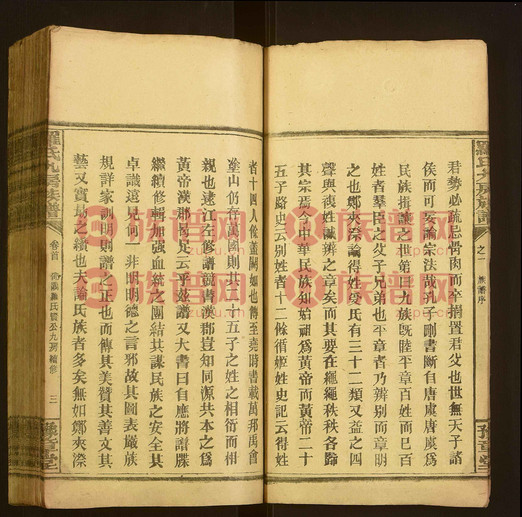 君勢必疏忌骨肉而卒捐置君父也世無天子諸
侯而可妄論宗法哉孔子刪書斷自唐虞唐虞爲
民族揖讓之世第曰九族既睦平章百姓而已百
姓者羣臣之父子兄弟也平章者乃辨別而章明
之也鄭夾漈論得姓受氏有三十二類又益之四
聲與複姓識辨之章矣而其要在繩繩秩秩各歸
其宗焉今中華民族知始祖爲黃帝而黃帝二十
五子路史云別姓者十二餘循姬姓史記云得姓
者十四人係蓋闕如也傳至堯時書載萬邦禹會
塗山仍存萬國則共二十五子之姓之相衍而相
親也遠江左修譜盡書漢郡豈知同源共本之爲
黃帝漢郡何足云乎茲譜又大書曰自應將譜牒
繼續修輯加强血統之團結共謀民族之安全其
卓識遠見何一非明明德之言邪故其圖表嚴族
規詳家訓明則譜之正也而傳其美贊其善文其
藝又實譜之續也夫論氏族者多矣無如鄭夾漈
羅氏九房族譜
卷首
三
羅氏九房族譜
之一
族譜序